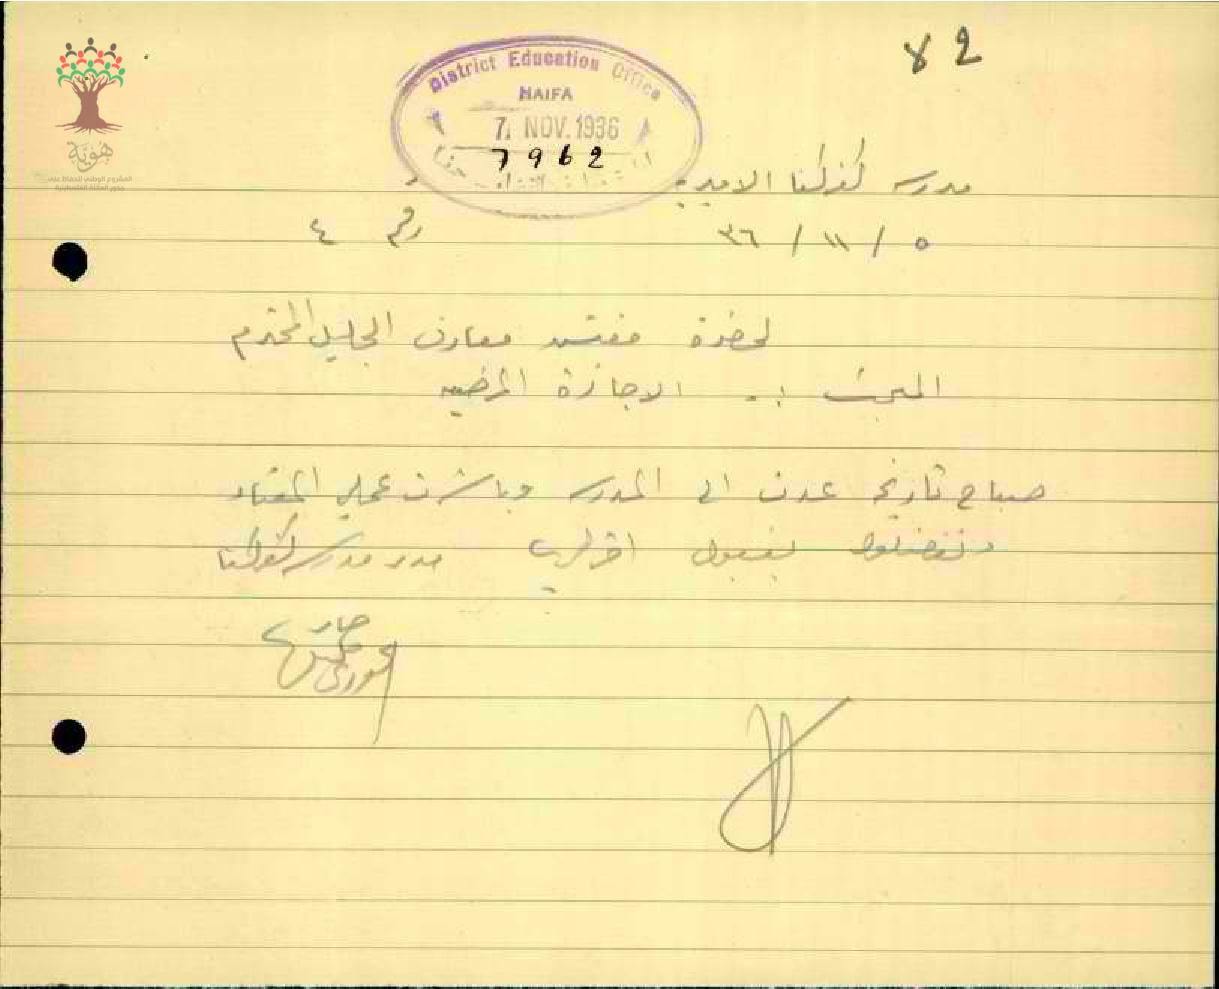 82
District Education Office
HAIFA
7 NOV. 1936
7962
هوية
المشروع الوطني للحفاظ على
جذور العائلة الفلسطينية
مدرسة كفركنا الاميرية
٥ / ١١ / ٣٦ رقم ٤
لحضرة مفتش معارف الجليل المحترم
المبحث :- الاجازة المرضيه
صباح تاريخه عدت الى المدرسه وباشرت عملي المعتاد
وتفضلوا بقبول احترامي مدير مدرسة كفركنا